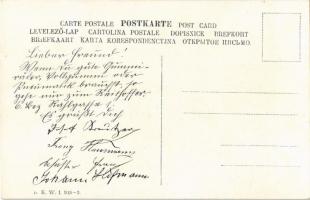 CARTE POSTALE POSTKARTE POST CARD
LEVELEZŐ-LAP CARTOLINA POSTALE DOPISNICE BREFKORT
BRIEFKAART KARTA KORESPONDENCYJNA ОТКРЫТОЕ ПИСЬМО.
Lieber Freund!
Wenn du gute Gummi-
räder, Vollgummi oder
Pneumatik brauchst, so
gehe nur zum
6. Bez
Es grüßt dich
Josef
Franz
Johann Hofmann
B. K. W. I. 918-3.